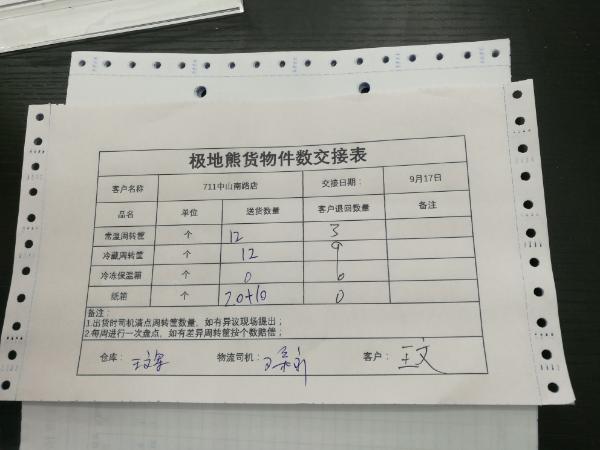 极地熊货物件数交接表
客户名称 711中山南路店 交接日期： 9月17日
品名 单位 送货数量 客户退回数量 备注
常温周转筐 个 12 3
冷藏周转筐 个 12 9
冷冻保温箱 个 0 0
纸箱 个 20+10 0
备注：
1.出货时司机清点周转筐数量，如有异议现场提出；
2.每周进行一次盘点，如有差异周转筐按个数赔偿；
仓库： 物流司机： 客户： 王文